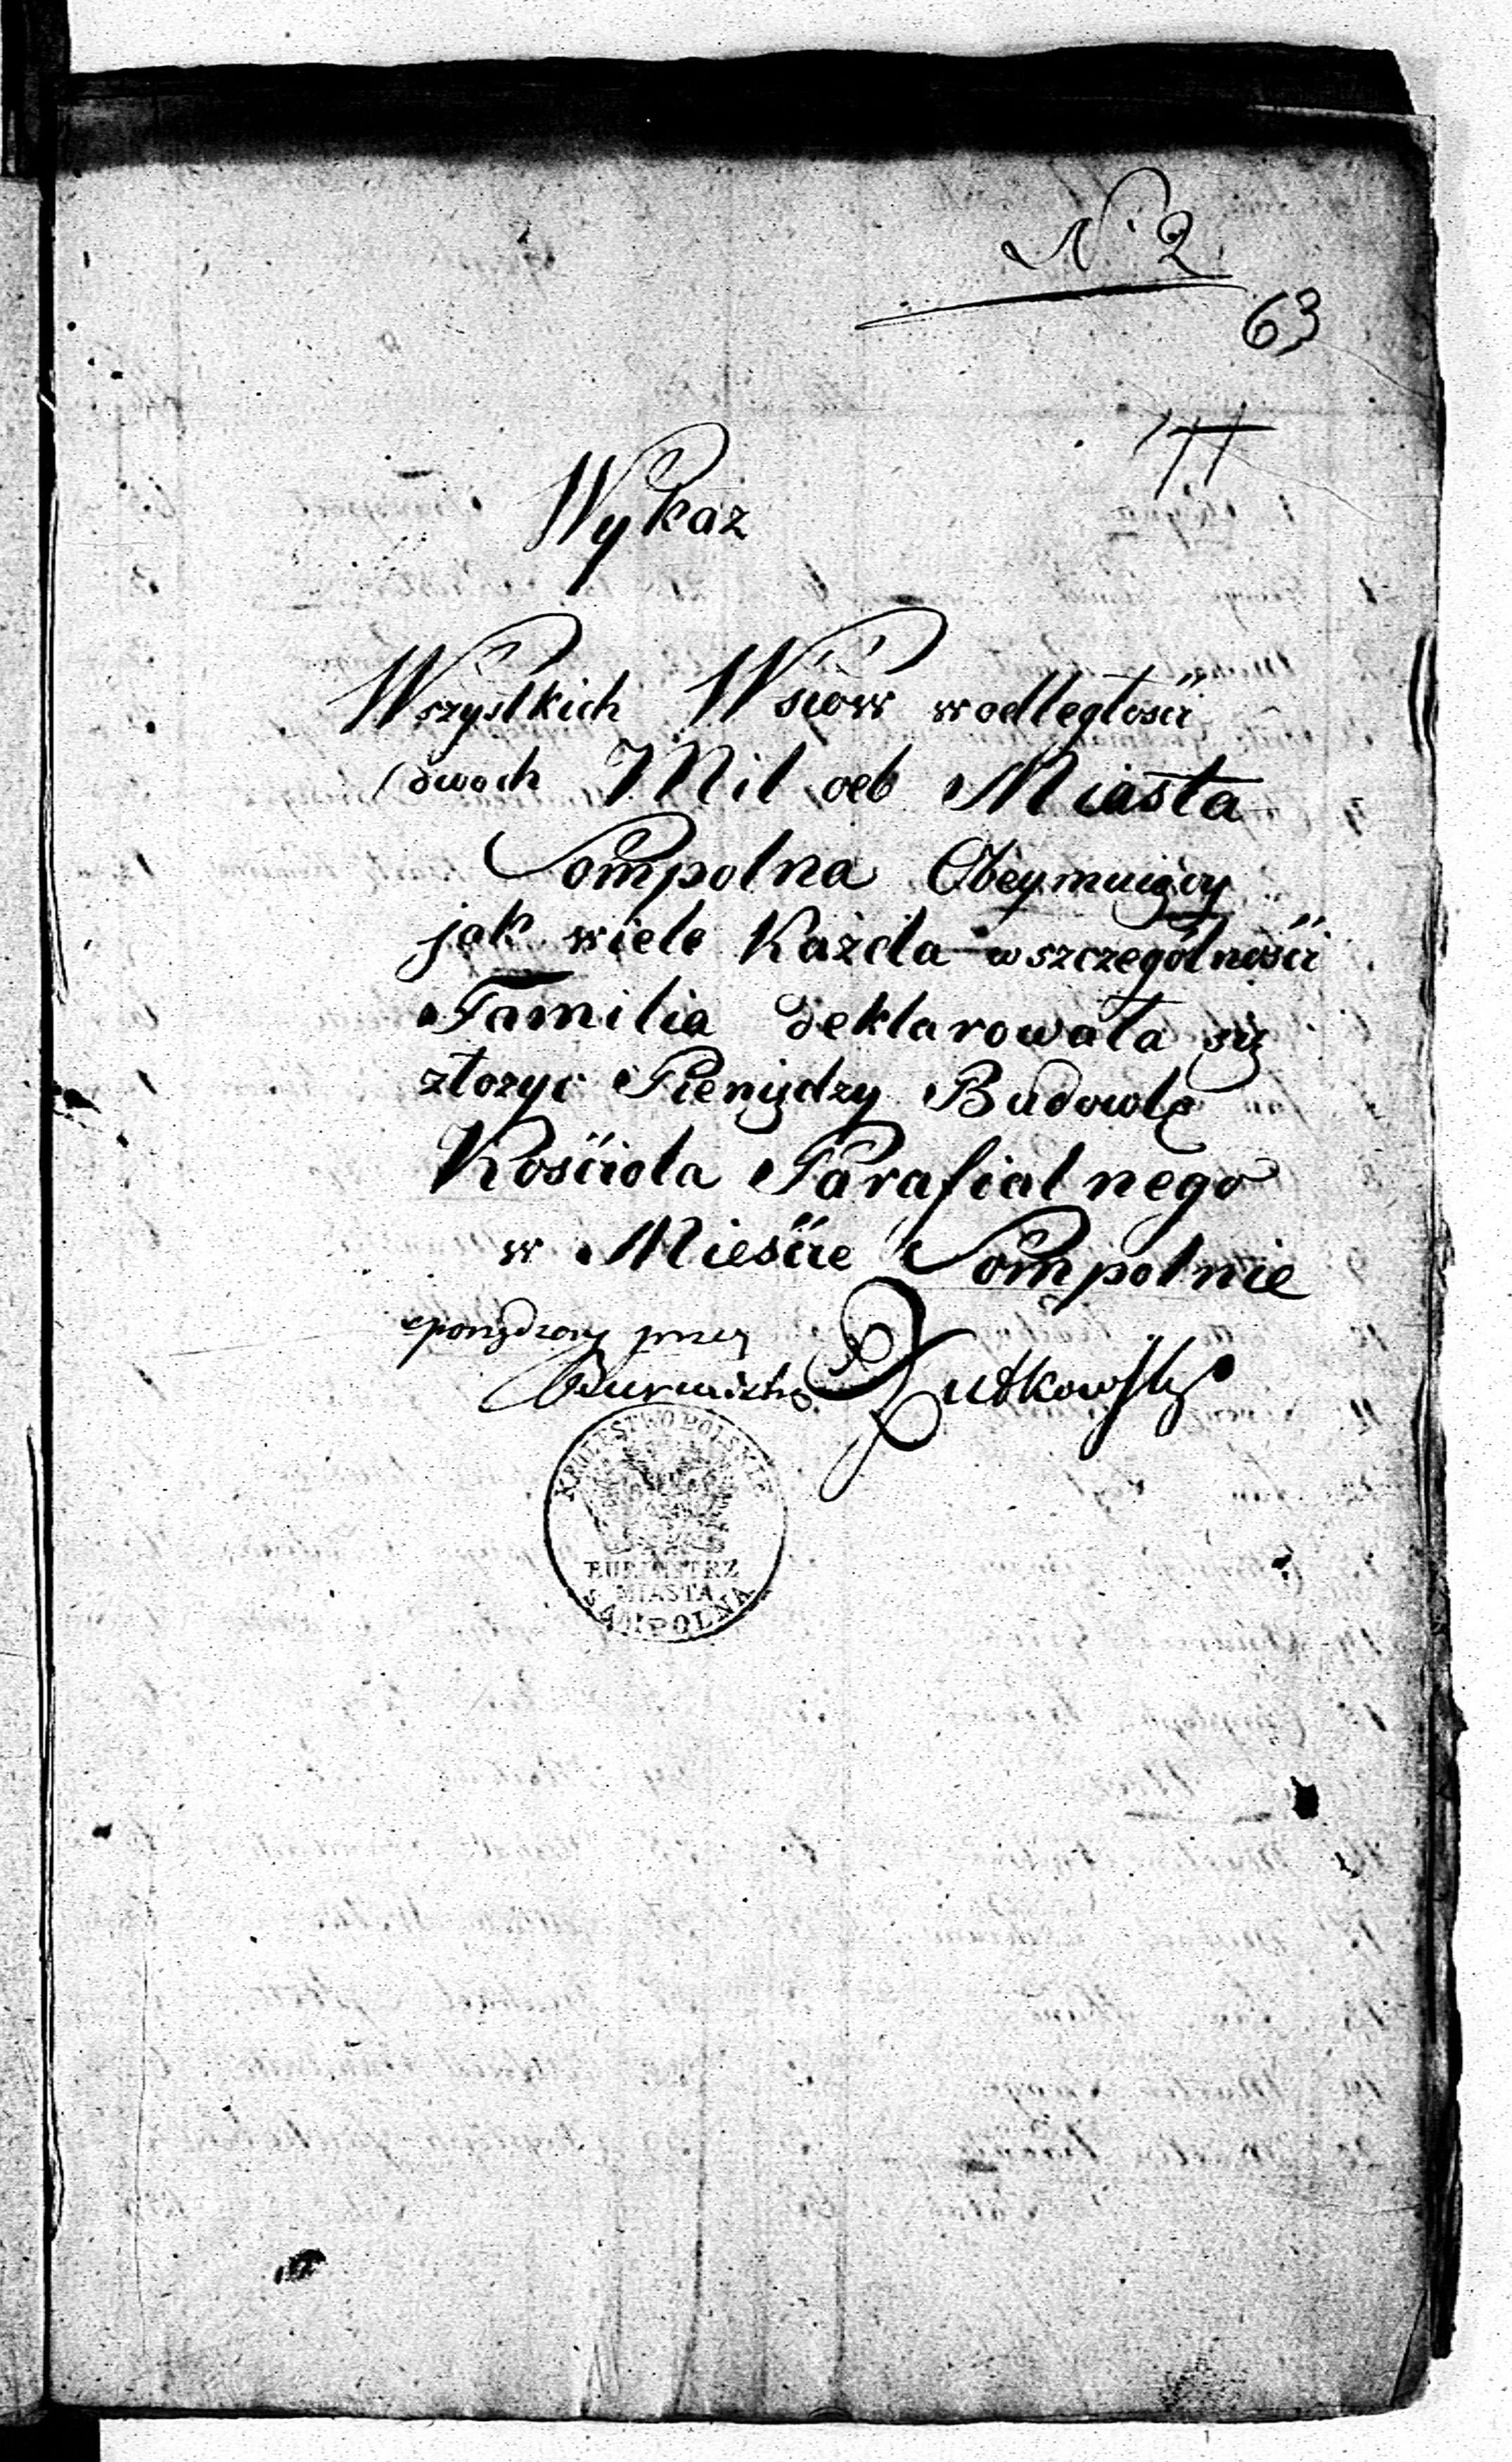 N. 2
63
Wykaz
Wszystkich Wsiow w odległości
dwoch Mil od Miasta
Sompolna Obeymuiący
jak wiele Każda w szczególności
Familia deklarowała się
złozyc Pieniędzy Budowlę
Kościoła Parafialnego
w Mieście Sompolnie
sporządzony przez
Burmistrza Rutkowski
KRÓLESTWO POLSKIE
BURMISTRZ
MIASTA
SAMPOLNA